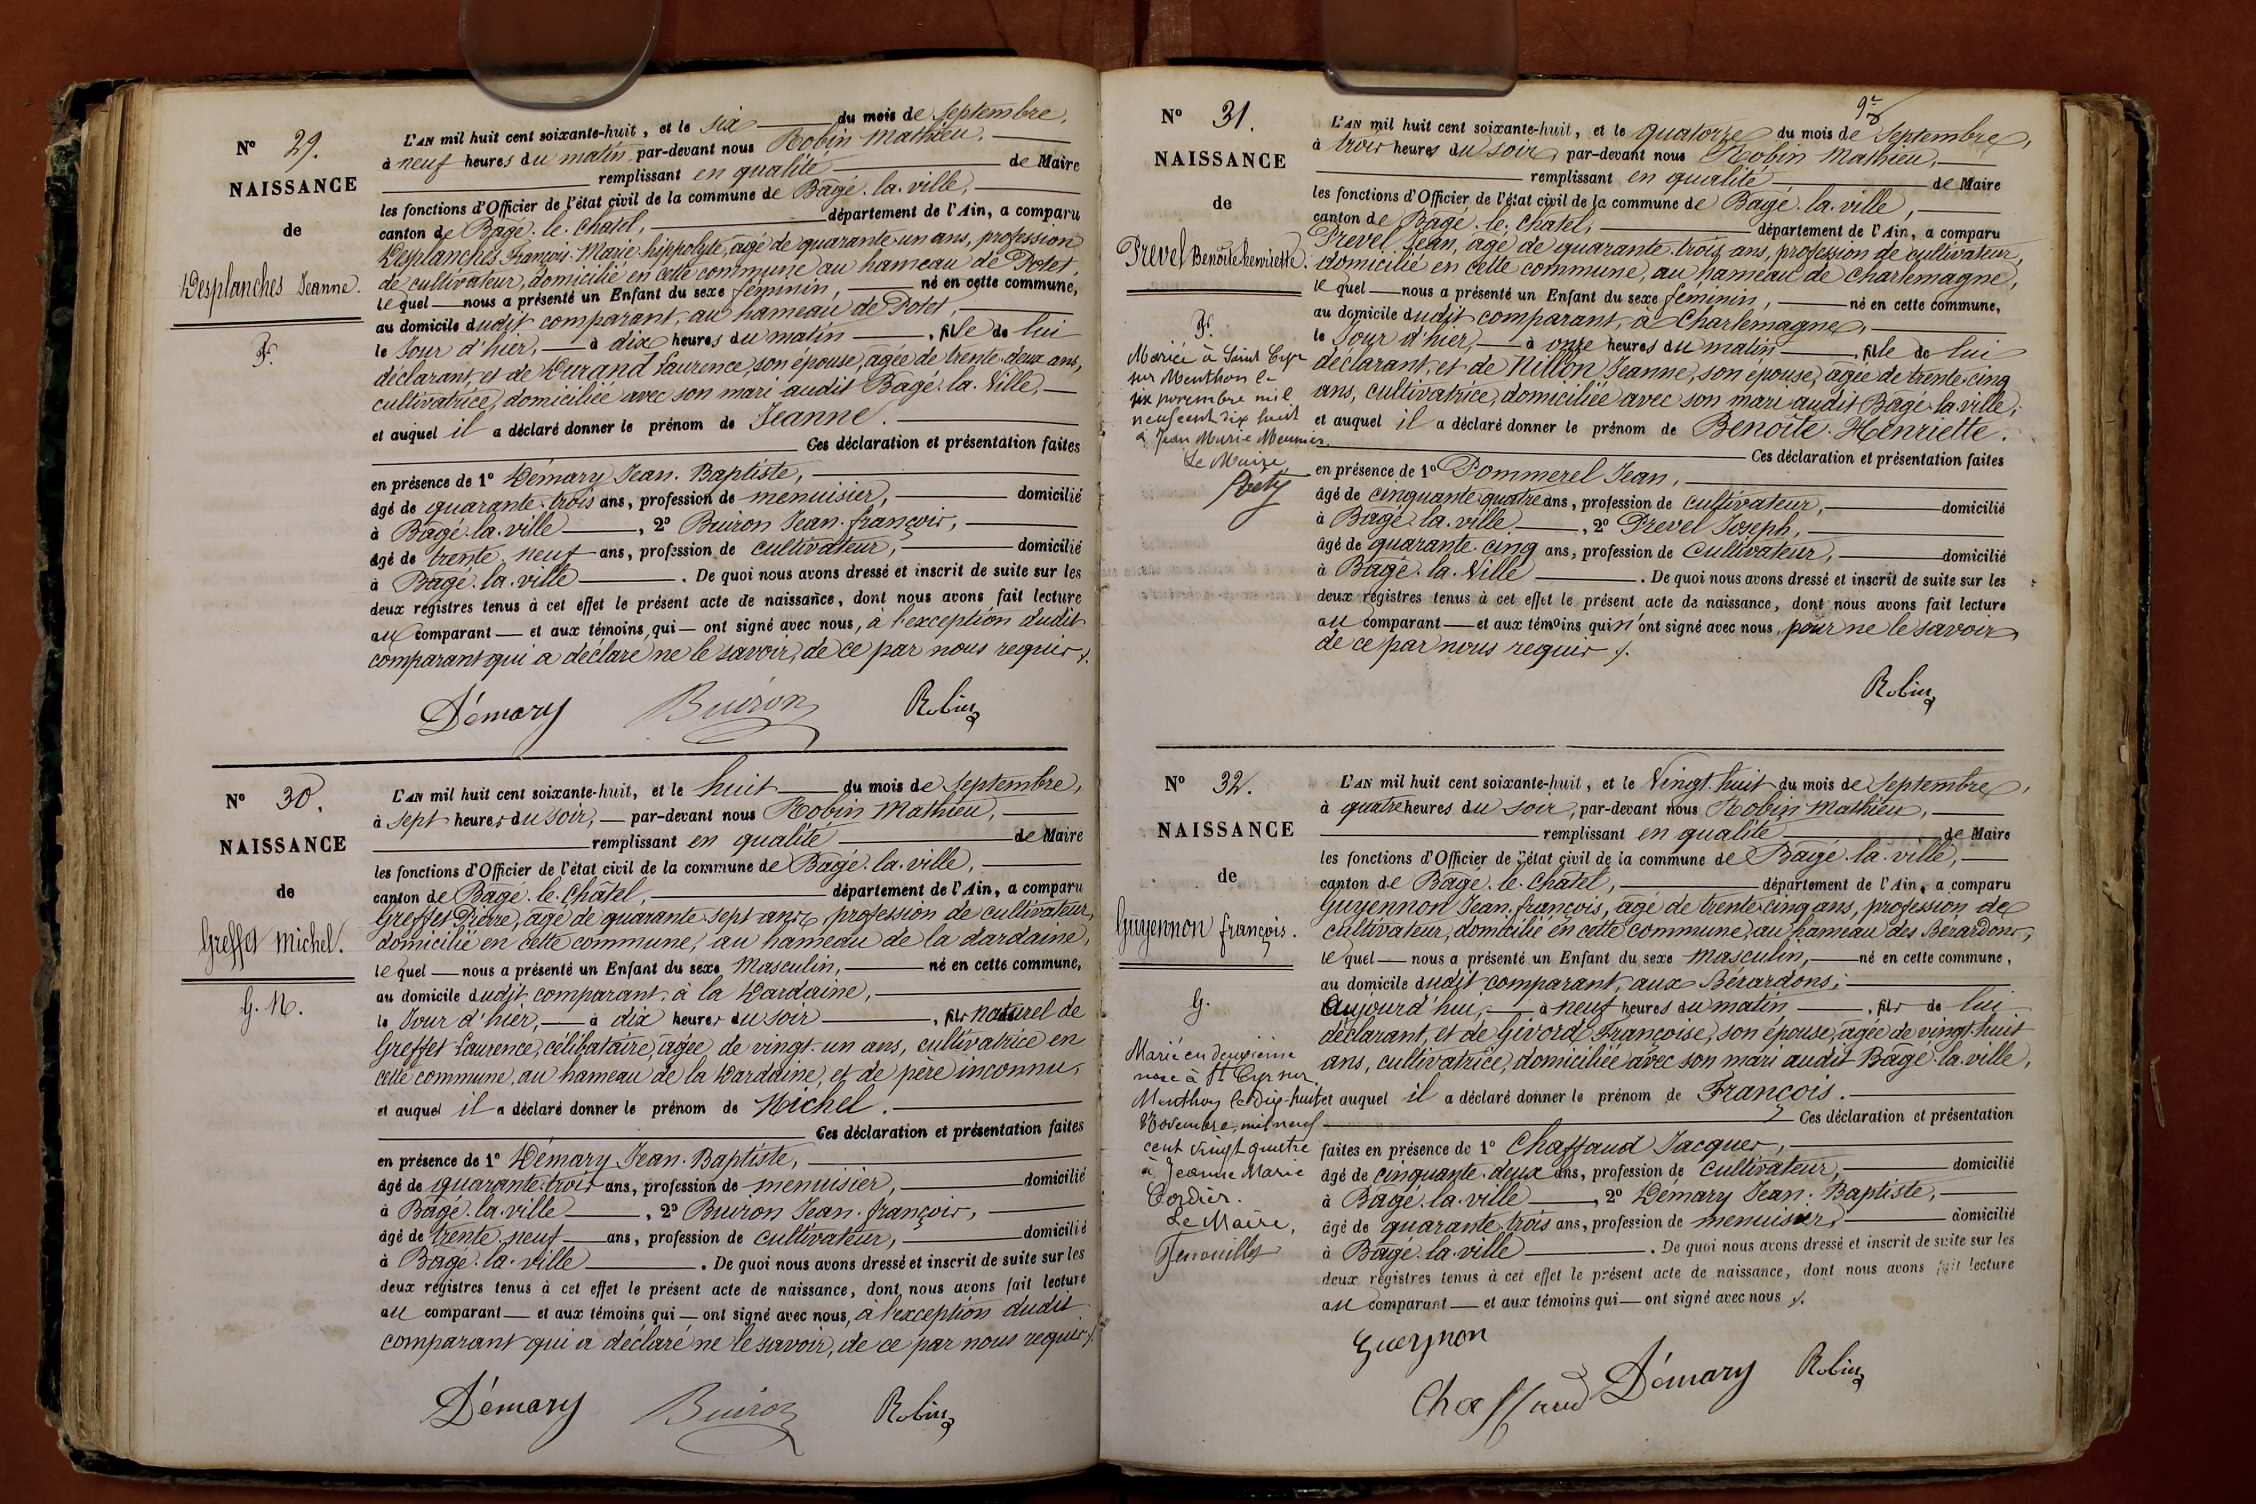 N° 29.
NAISSANCE
de
Desplanches Jeanne.
F.
L'AN mil huit cent soixante-huit, et le six du mois de Septembre,
à neuf heures du matin, par-devant nous Robin Mathieu,
remplissant en qualité de Maire
les fonctions d'Officier de l'état civil de la commune de Bagé-la-ville,
canton de Bagé-le-Chatel, département de l'Ain, a comparu
Desplanches François-Marie-hippolyte, âgé de quarante-un ans, profession
de cultivateur, domicilié en cette commune au hameau de Potet,
lequel nous a présenté un Enfant du sexe féminin, né en cette commune,
au domicile dudit comparant, au hameau de Potet,
le Jour d'hier, à dix heures du matin, fille de lui
déclarant, et de Durand Laurence, son épouse, âgée de trente-deux ans,
cultivatrice, domiciliée avec son mari audit Bagé-la-Ville,
et auquel il a déclaré donner le prénom de Jeanne.
Ces déclaration et présentation faites
en présence de 1° Démary Jean-Baptiste,
âgé de quarante-trois ans, profession de menuisier, domicilié
à Bagé-la-ville, 2° Buiron Jean-françois,
âgé de trente-neuf ans, profession de cultivateur, domicilié
à Bagé-la-ville. De quoi nous avons dressé et inscrit de suite sur les
deux registres tenus à cet effet le présent acte de naissance, dont nous avons fait lecture
au comparant et aux témoins qui ont signé avec nous, à l'exception dudit
comparant qui a déclaré ne le savoir, de ce par nous requis ./.
Démary Buiron Robin
N° 30.
NAISSANCE
de
Greffet Michel.
G. N.
L'AN mil huit cent soixante-huit, et le huit du mois de Septembre,
à sept heures du soir, par-devant nous Robin Mathieu,
remplissant en qualité de Maire
les fonctions d'Officier de l'état civil de la commune de Bagé-la-ville,
canton de Bagé-le-Châtel, département de l'Ain, a comparu
Greffet Pierre, âgé de quarante-sept ans, profession de cultivateur,
domicilié en cette commune, au hameau de la dardaine,
lequel nous a présenté un Enfant du sexe Masculin, né en cette commune,
au domicile dudit comparant, à la Dardaine,
le Jour d'hier, à dix heures du soir, fils naturel de
Greffet Laurence, célibataire, âgée de vingt-un ans, cultivatrice en
cette commune, au hameau de la Dardaine, et de père inconnu,
et auquel il a déclaré donner le prénom de Michel.
Ces déclaration et présentation faites
en présence de 1° Démary Jean-Baptiste,
âgé de quarante-trois ans, profession de menuisier, domicilié
à Bagé-la-ville, 2° Buiron Jean-françois,
âgé de trente-neuf ans, profession de cultivateur, domicilié
à Bagé-la-ville. De quoi nous avons dressé et inscrit de suite sur les
deux registres tenus à cet effet le présent acte de naissance, dont nous avons fait lecture
au comparant et aux témoins qui ont signé avec nous, à l'exception dudit
comparant qui a déclaré ne le savoir, de ce par nous requis ./.
Démary Buiron Robin
N° 31.
NAISSANCE
de
Prevel Benoîte henriette.
F.
Mariée à Saint Cyr
sur Menthon le
six novembre mil
neuf cent dix huit
à Jean Marie Meunier.
Le Maire
L'AN mil huit cent soixante-huit, et le quatorze du mois de Septembre,
à trois heures du soir, par-devant nous Robin Mathieu,
remplissant en qualité de Maire
les fonctions d'Officier de l'état civil de la commune de Bagé-la-ville,
canton de Bagé-le-Chatel, département de l'Ain, a comparu
Prevel Jean, âgé de quarante-trois ans, profession de cultivateur,
domicilié en cette commune, au hameau de Charlemagne,
lequel nous a présenté un Enfant du sexe féminin, né en cette commune,
au domicile dudit comparant, à Charlemagne,
le Jour d'hier, à onze heures du matin, fille de lui
déclarant, et de Nillon Jeanne, son épouse, âgée de trente-cinq
ans, cultivatrice, domiciliée avec son mari audit Bagé-la-ville,
et auquel il a déclaré donner le prénom de Benoîte-Henriette.
Ces déclaration et présentation faites
en présence de 1° Pommerel Jean,
âgé de cinquante-quatre ans, profession de cultivateur, domicilié
à Bagé-la-ville, 2° Prevel Joseph,
âgé de quarante-cinq ans, profession de Cultivateur, domicilié
à Bagé-la-Ville. De quoi nous avons dressé et inscrit de suite sur les
deux registres tenus à cet effet le présent acte de naissance, dont nous avons fait lecture
au comparant et aux témoins qui n'ont signé avec nous, pour ne le savoir
de ce par nous requis ./.
Robin
N° 32.
NAISSANCE
de
Guyennon françois.
G.
Marié en deuxième
noce à St Cyr sur
Menthon le dix-huit
Novembre mil neuf
cent vingt quatre
à Jeanne Marie
Cordier.
Le Maire,
L'AN mil huit cent soixante-huit, et le Vingt-huit du mois de Septembre,
à quatre heures du soir, par-devant nous Robin Mathieu,
remplissant en qualité de Maire
les fonctions d'Officier de l'état civil de la commune de Bagé-la-ville,
canton de Bagé-le-Chatel, département de l'Ain, a comparu
Guyennon Jean-françois, âgé de trente-cinq ans, profession de
cultivateur, domicilié en cette commune, au hameau des Bérardons,
lequel nous a présenté un Enfant du sexe masculin, né en cette commune,
au domicile dudit comparant, aux Bérardons,
Aujourd'hui, à neuf heures du matin, fils de lui
déclarant, et de Givord Françoise, son épouse, âgée de vingt-huit
ans, cultivatrice, domiciliée avec son mari audit Bagé-la-ville,
et auquel il a déclaré donner le prénom de François.
Ces déclaration et présentation
faites en présence de 1° Chaffaud Jacques,
âgé de cinquante-deux ans, profession de cultivateur, domicilié
à Bagé-la-ville, 2° Démary Jean-Baptiste,
âgé de quarante-trois ans, profession de menuisier, domicilié
à Bagé-la-ville. De quoi nous avons dressé et inscrit de suite sur les
deux registres tenus à cet effet le présent acte de naissance, dont nous avons fait lecture
au comparant et aux témoins qui ont signé avec nous ./.
Gueynon
Chaffaud Démary Robin